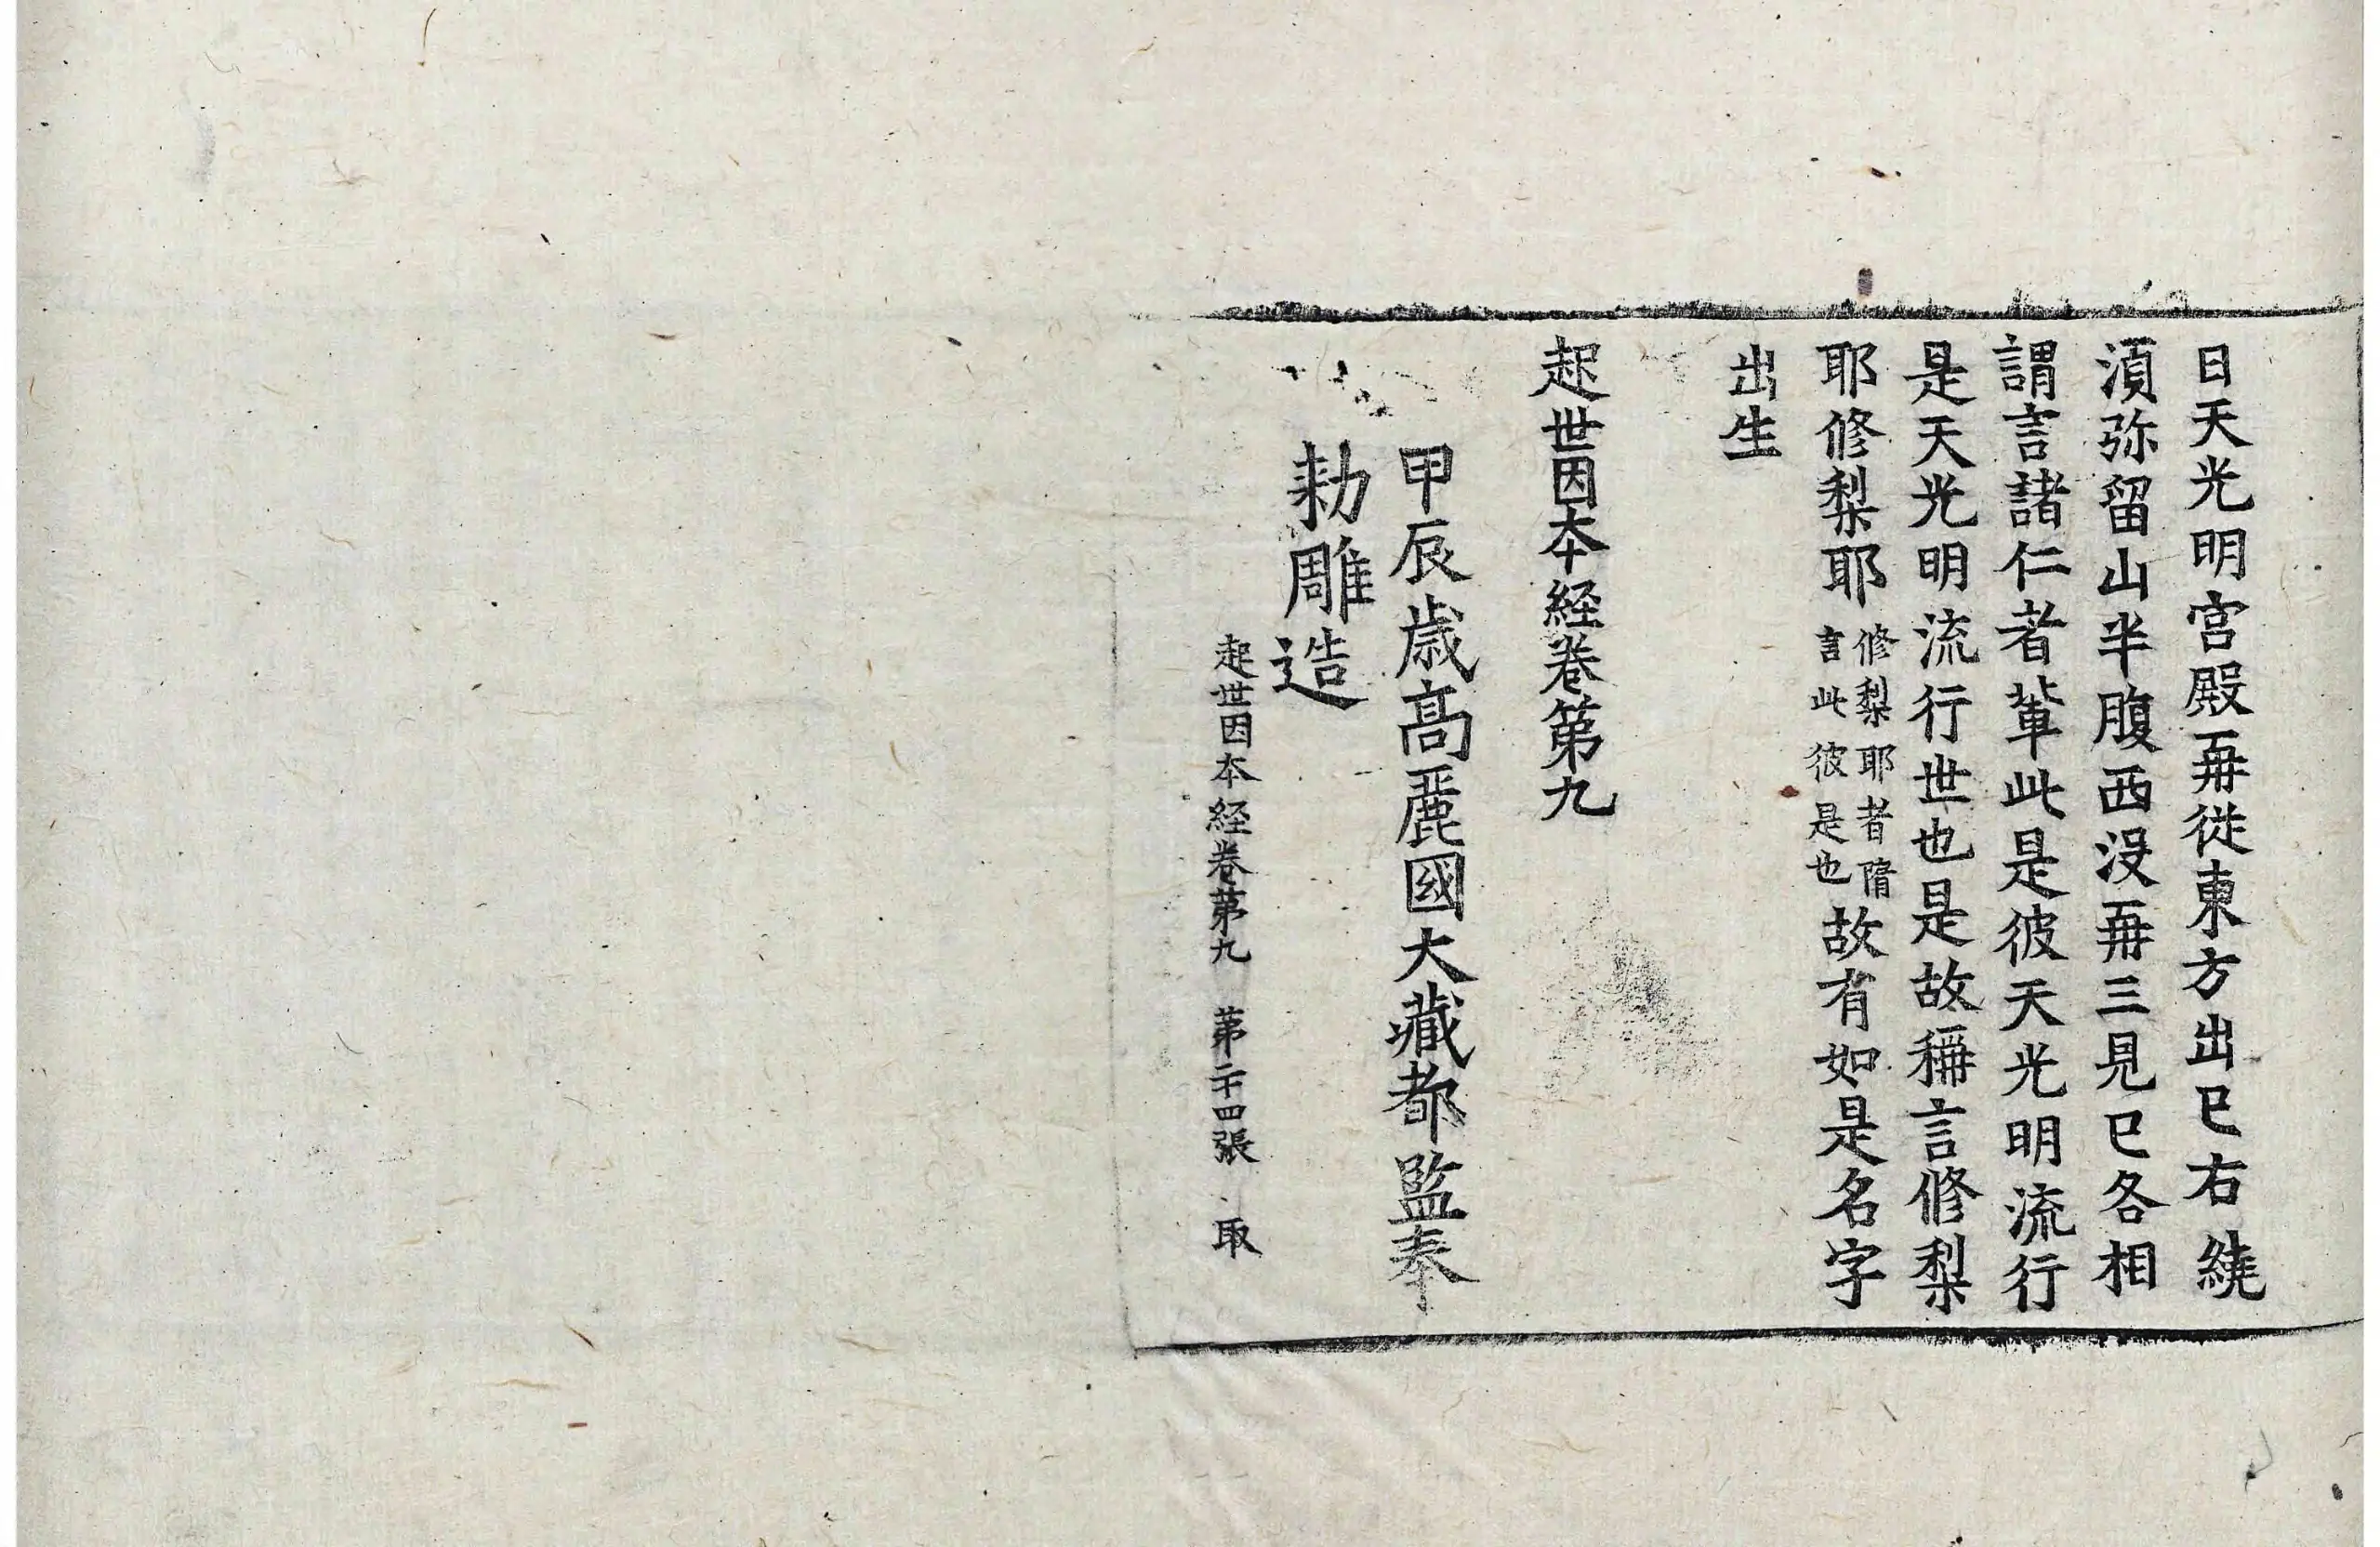 日天光明宮殿再從東方出已右繞
湏弥留山半腹西沒再三見已各相
謂言諸仁者輩此是彼天光明流行
是天光明流行世也是故稱言修梨
耶修梨耶修梨耶者隋言此彼是也故有如是名字
出生
起世因本経卷第九
甲辰歳高麗國大藏都監奉
勑雕造
起世因本経卷第九 第二十四張 取